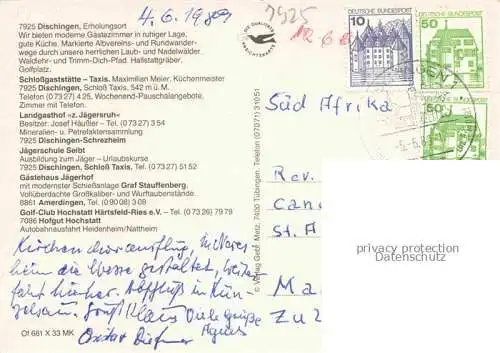 4.6.1989
7925
12 6 8
7925 Dischingen, Erholungsort
Wir bieten moderne Gästezimmer in ruhiger Lage,
gute Küche, Markierte Albvereins- und Rundwander-
wege durch unsere herrlichen Laub- und Nadelwälder.
Waldlehr- und Trimm-Dich-Pfad. Hallstattgräber.
Golfplatz.
Schloßgaststätte – Taxis. Maximilian Meier, Küchenmeister
7925 Dischingen, Schloß Taxis, 542 m ü. M.
Telefon (0 73 27) 4 25, Wochenend-Pauschalangebote,
Zimmer mit Telefon.
Landgasthof »z. Jägersruh«
Besitzer: Josef Häußler – Tel. (0 73 27) 3 54
Mineralien- u. Petrefaktensammlung
7925 Dischingen-Schrezheim
Jägerschule Seibt
Ausbildung zum Jäger – Urlaubskurse
7925 Dischingen, Schloß Taxis, Tel. (0 73 27) 51 52
Gästehaus Jägerhof
mit modernster Schießanlage Graf Stauffenberg.
Vollüberdachte Großkaliber- und Wurftaubenstände.
8861 Amerdingen, Tel. (0 90 08) 3 09
Golf-Club Hochstatt Härtsfeld-Ries e.V. – Tel. (0 73 26) 79 79
7086 Hofgut Hochstatt
Autobahnausfahrt Heidenheim/Nattheim
DIE QUALITÄTS
ANSICHTSKARTE
© Verlag Gebr. Metz, 7400 Tübingen, Telefon (07071) 31051
DEUTSCHE BUNDESPOST
10
DEUTSCHE BUNDESPOST
50
50
Süd Afrika
Rev.
Can
St. A
Ma
Zu
privacy protection
Datenschutz
Kirchenchorausflug, in Neres-
heim die Messe gestaltet, Weiter-
fahrt hierher. Abschluß in
Gruß Klaus Viele Grüße
Agnes
Of 661 X 33 MK